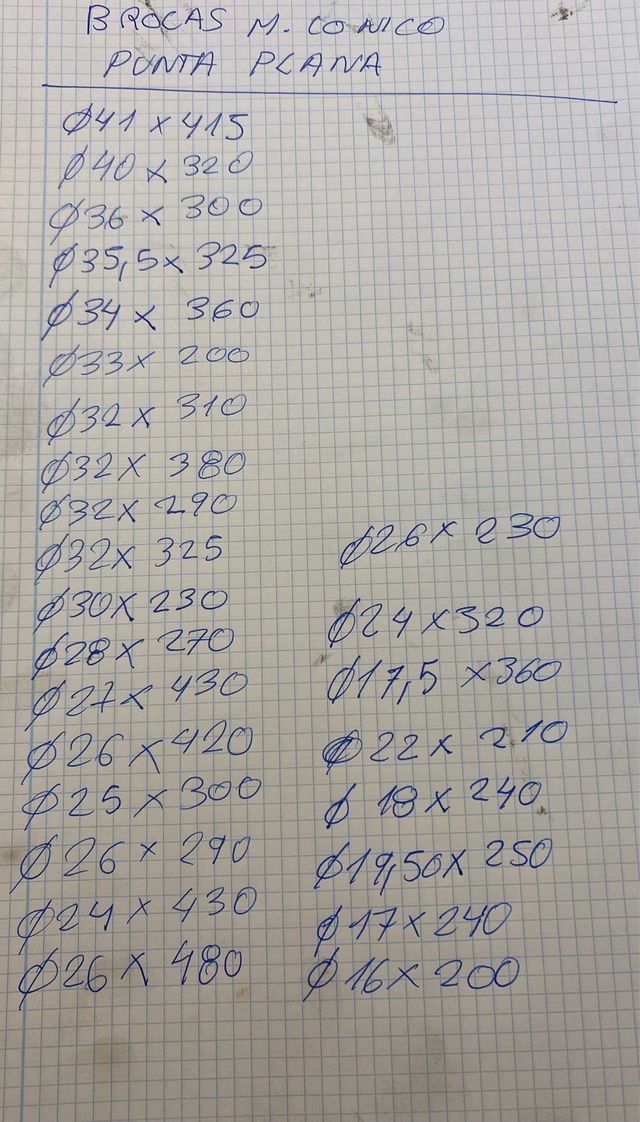 BROCAS M. CONICO
PUNTA PLANA
Ø41 x 415
Ø40 x 320
Ø36 x 300
Ø35,5 x 325
Ø34 x 360
Ø33 x 200
Ø32 x 310
Ø32 x 380
Ø32 x 290
Ø32 x 325
Ø30 x 230
Ø28 x 270
Ø27 x 430
Ø26 x 420
Ø25 x 300
Ø26 x 290
Ø24 x 430
Ø26 x 480
Ø26 x 230
Ø24 x 320
Ø17,5 x 360
Ø22 x 210
Ø18 x 240
Ø19,50 x 250
Ø17 x 240
Ø16 x 200